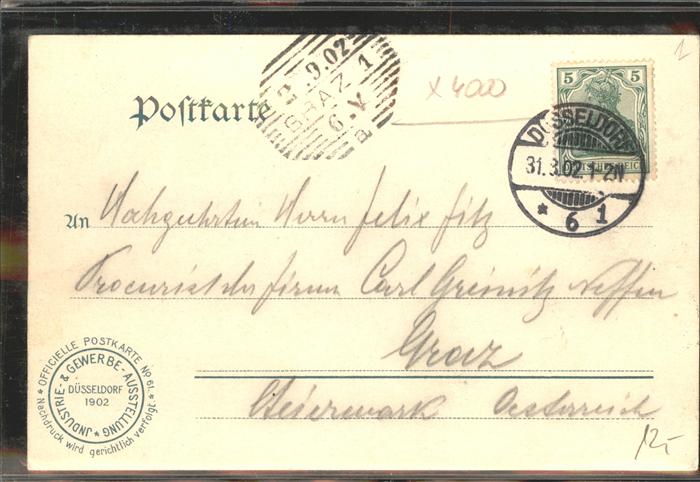 1
x 400
5 5
DEUTSCHES REICH
DÜSSELDORF
31.3.02.1-2N
* 6 1
.9.02
GRAZ 1
6.V
B
Postkarte
An Wohlgebohren Herrn Felix Fitz
Procurist der Firma Carl Greinitz Neffen
Graz
Steiermark Oesterreich
* OFFICIELLE POSTKARTE No 61. *
Nachdruck wird gerichtlich verfolgt.
JNDUSTRIE- & GEWERBE-AUSSTELLUNG *
DÜSSELDORF
1902
12,-